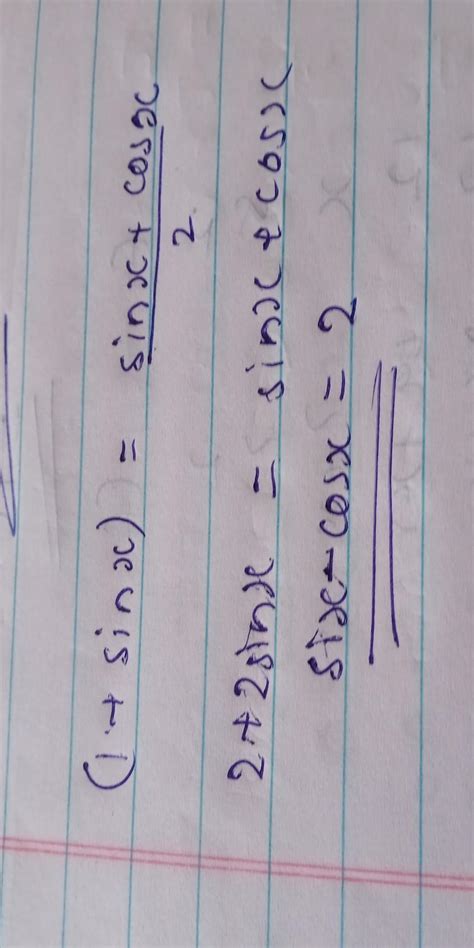 (1 + sin x) = sinx + cosx / 2
2 + 2sinx = sinx + cosx
six - cosx = 2